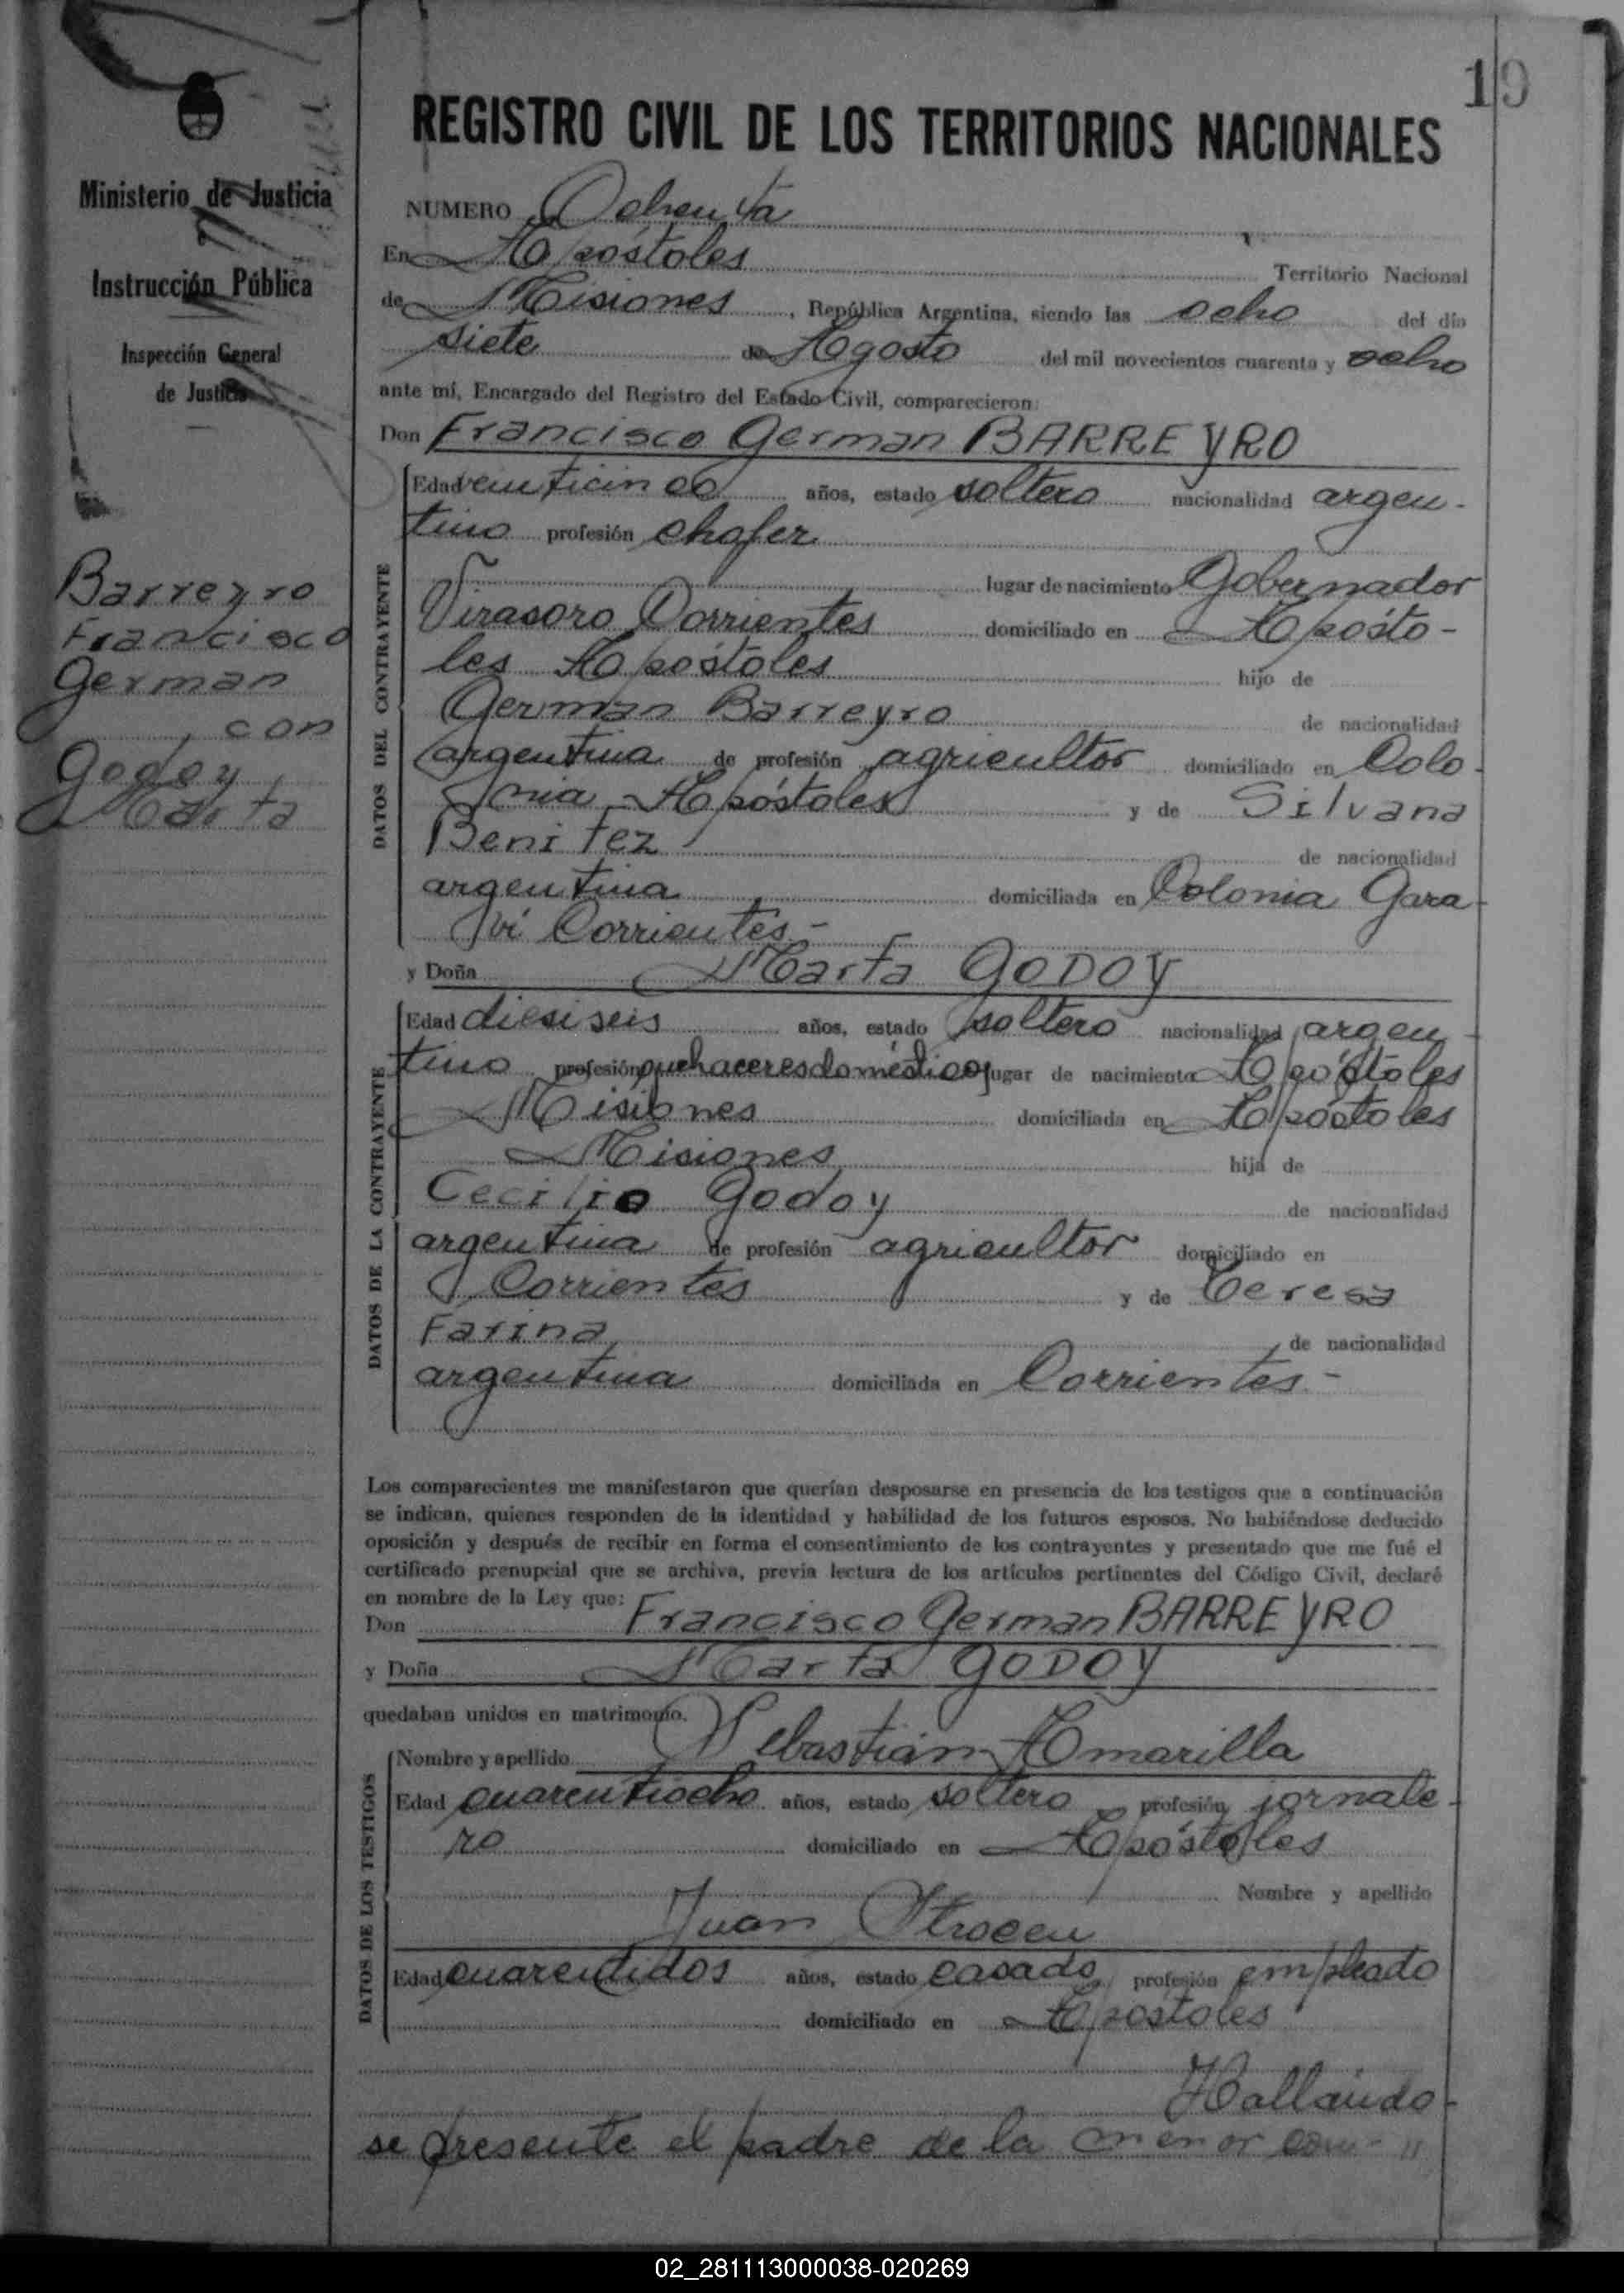 19
Ministerio de Justicia
Instrucción Pública
Inspección General
de Justicia
Barreyro
Francisco
German
con
Godoy
Marta
REGISTRO CIVIL DE LOS TERRITORIOS NACIONALES
NUMERO Ochenta
En Apóstoles Territorio Nacional
de Misiones, República Argentina, siendo las ocho del día
siete de Agosto del mil novecientos cuarenta y ocho
ante mí, Encargado del Registro del Estado Civil, comparecieron:
Don Francisco German BARREYRO
DATOS DEL CONTRAYENTE
Edad veinticinco años, estado soltero nacionalidad argen-
tino profesión chofer
lugar de nacimiento Gobernador
Virasoro Corrientes domiciliado en Apósto-
les Apóstoles hijo de
German Barreyro de nacionalidad
argentina de profesión agricultor domiciliado en Colo-
nia Apóstoles y de Silvana
Benitez de nacionalidad
argentina domiciliada en Colonia Gara-
vi Corrientes.-
y Doña Marta GODOY
DATOS DE LA CONTRAYENTE
Edad diesiseis años, estado soltero nacionalidad argen-
tino profesión quehaceres doméstico lugar de nacimiento Apóstoles
Misiones domiciliada en Apóstoles
Misiones hija de
Cecilio Godoy de nacionalidad
argentina de profesión agricultor domiciliado en
Corrientes y de Teresa
Farina de nacionalidad
argentina domiciliada en Corrientes.-
Los comparecientes me manifestaron que querían desposarse en presencia de los testigos que a continuación
se indican, quienes responden de la identidad y habilidad de los futuros esposos. No habiéndose deducido
oposición y después de recibir en forma el consentimiento de los contrayentes y presentado que me fué el
certificado prenupcial que se archiva, previa lectura de los artículos pertinentes del Código Civil, declaré
en nombre de la Ley que:
Don Francisco German BARREYRO
y Doña Marta GODOY
quedaban unidos en matrimonio.
DATOS DE LOS TESTIGOS
Nombre y apellido Sebastián Amarilla
Edad cuarentiocho años, estado soltero profesión jornale-
ro domiciliado en Apóstoles
Nombre y apellido
Juan
Edad cuarentidos años, estado casado profesión empleado
domiciliado en Apóstoles
Hallándo-
se presente el padre de la menor
02_281113000038-020269